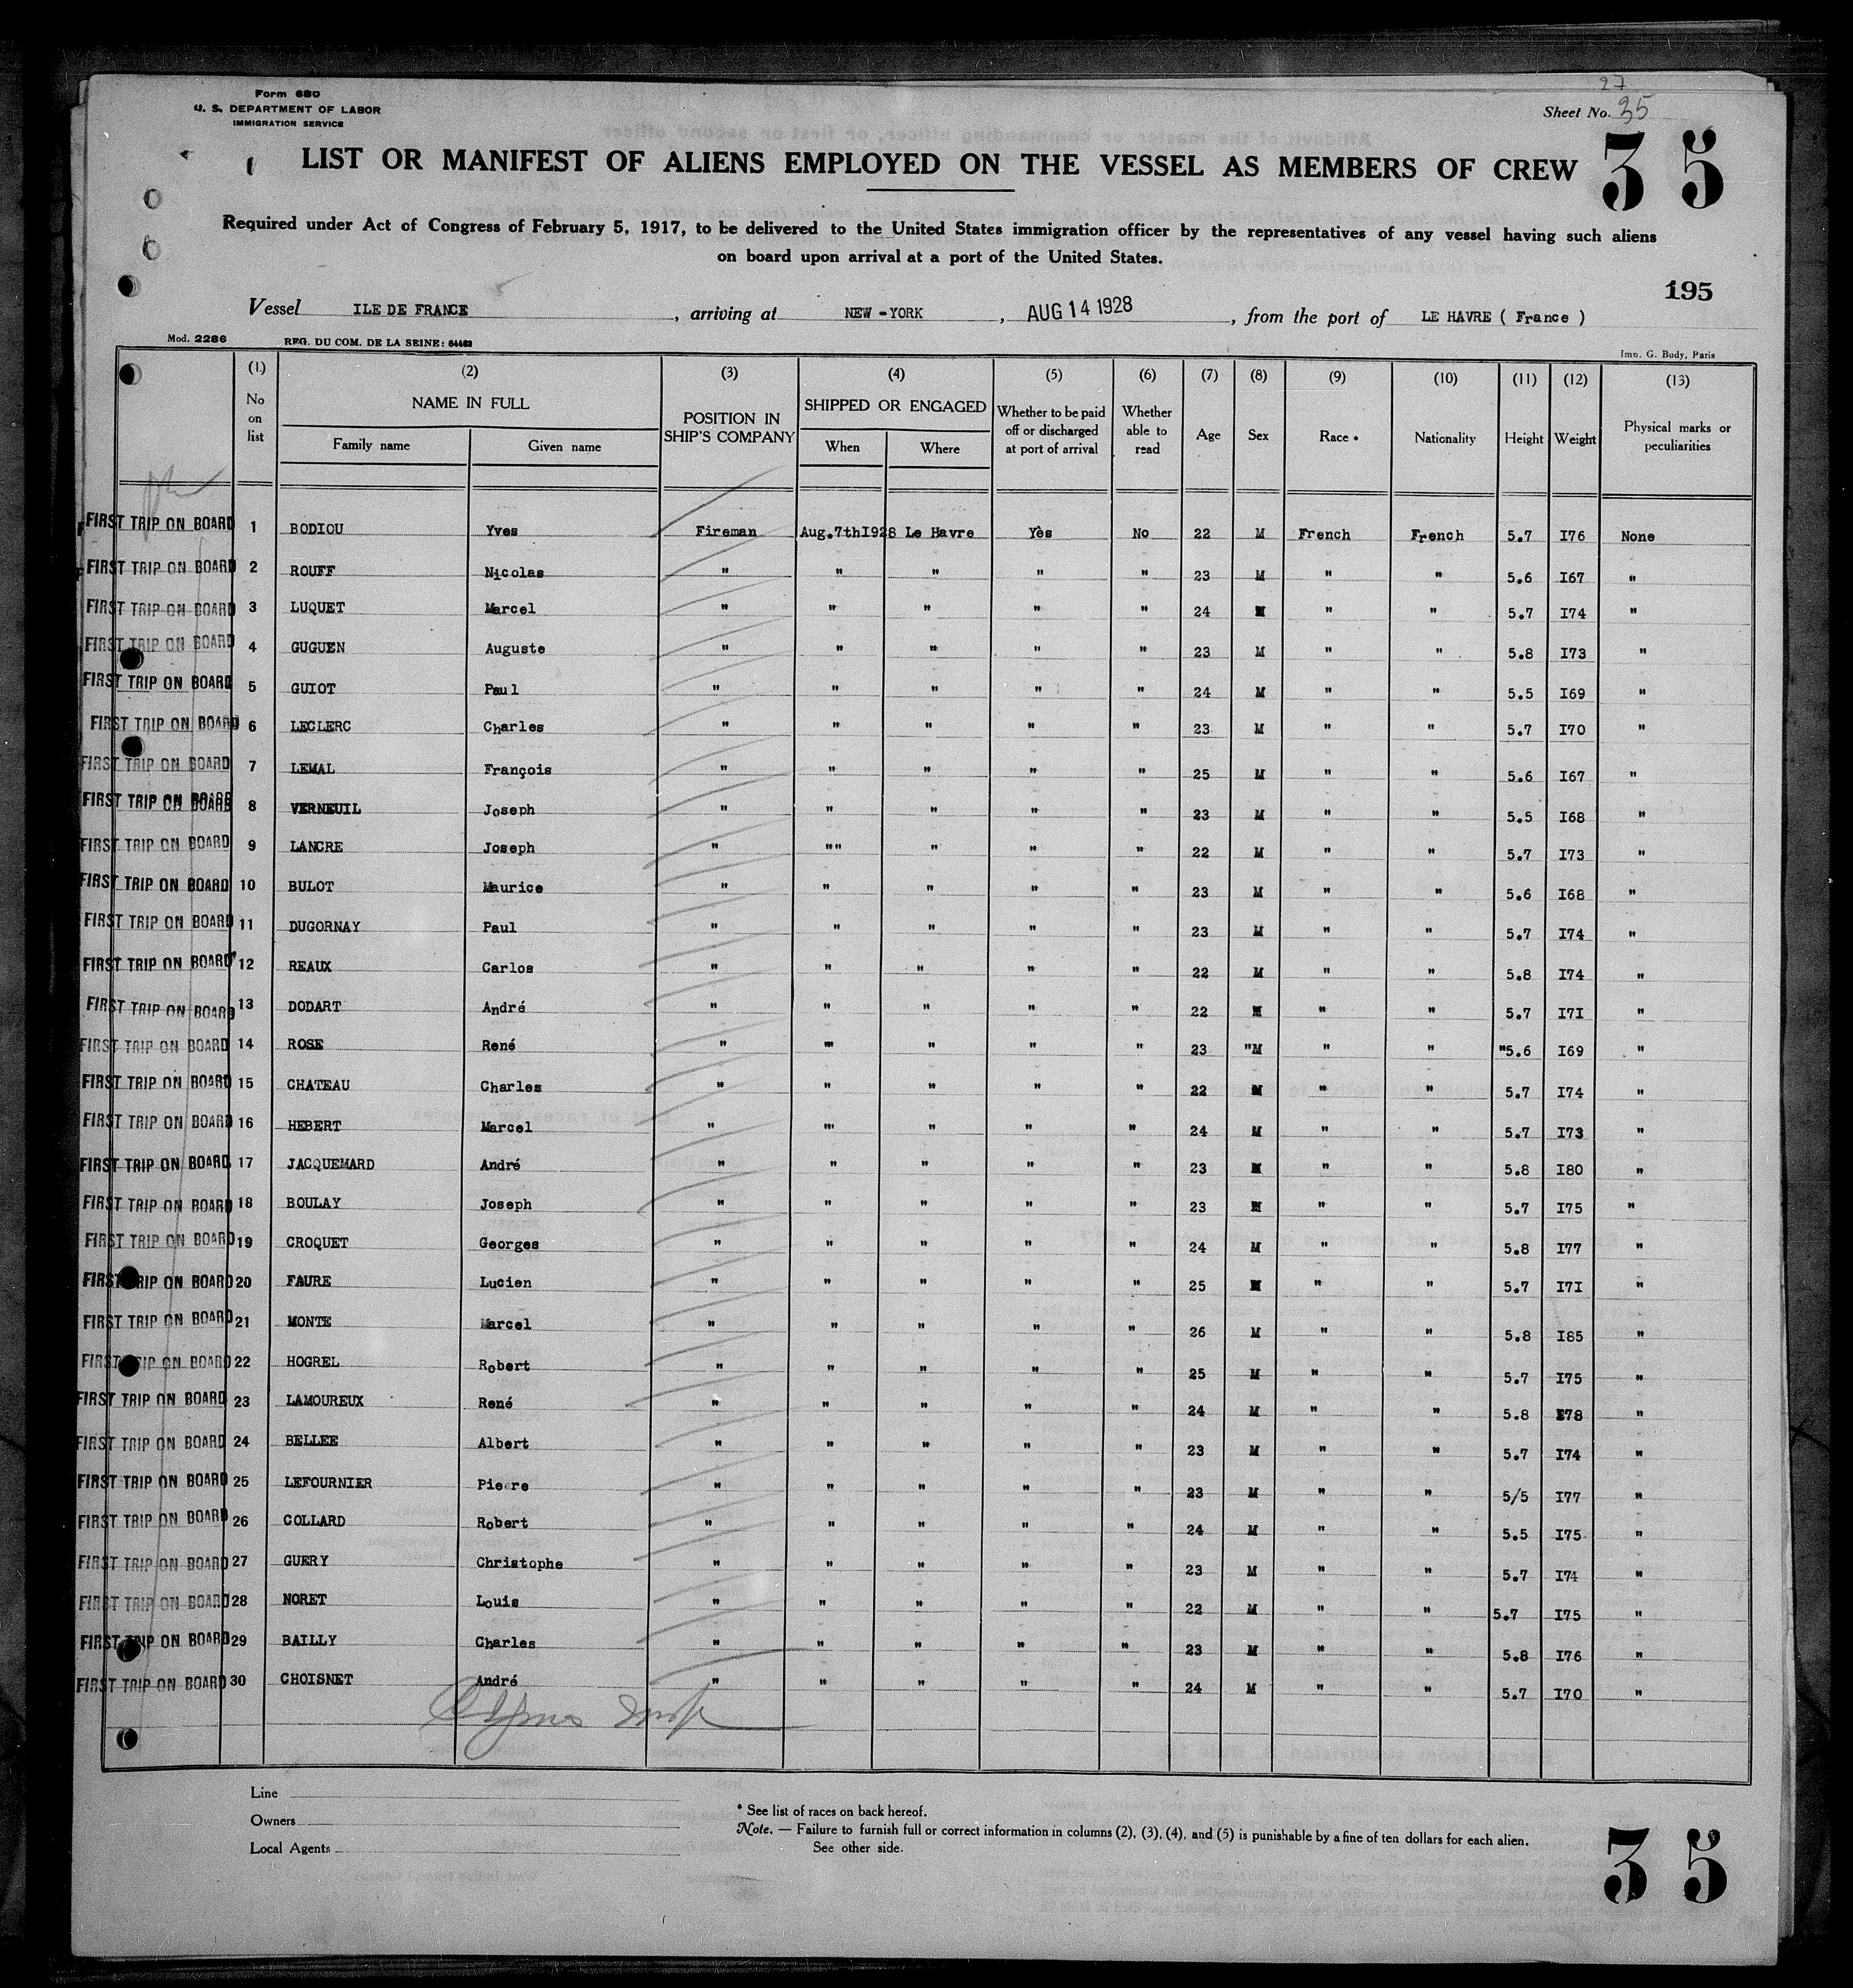 27
Form 680
U. S. DEPARTMENT OF LABOR
IMMIGRATION SERVICE
Sheet No. 35
35
LIST OR MANIFEST OF ALIENS EMPLOYED ON THE VESSEL AS MEMBERS OF CREW
Required under Act of Congress of February 5, 1917, to be delivered to the United States immigration officer by the representatives of any vessel having such aliens
on board upon arrival at a port of the United States.
195
Vessel ILE DE FRANCE, arriving at NEW-YORK, AUG 14 1928, from the port of LE HAVRE ( France )
Mod. 2286 REG. DU COM. DE LA SEINE: 64463 Imp. G. Budy, Paris
(1) No on list (2) NAME IN FULL Family name Given name (3) POSITION IN SHIP'S COMPANY (4) SHIPPED OR ENGAGED When Where (5) Whether to be paid off or discharged at port of arrival (6) Whether able to read (7) Age (8) Sex (9) Race * (10) Nationality (11) Height (12) Weight (13) Physical marks or peculiarities
FIRST TRIP ON BOARD 1 BODIOU Yves Fireman Aug.7thI928 Le Havre Yès No 22 M French French 5.7 I76 None
FIRST TRIP ON BOARD 2 ROUFF Nicolas " " " " " 23 M " " 5.6 I67 "
FIRST TRIP ON BOARD 3 LUQUET Marcel " " " " " 24 M " " 5.7 I74 "
FIRST TRIP ON BOARD 4 GUGUEN Auguste " " " " " 23 M " " 5.8 I73 "
FIRST TRIP ON BOARD 5 GUIOT Paul " " " " " 24 M " " 5.5 I69 "
FIRST TRIP ON BOARD 6 LECLERC Charles " " " " " 23 M " " 5.7 I70 "
FIRST TRIP ON BOARD 7 LEMAL François " " " " " 25 M " " 5.6 I67 "
FIRST TRIP ON BOARD 8 VERNEUIL Joseph " " " " " 23 M " " 5.5 I68 "
FIRST TRIP ON BOARD 9 LANCRE Joseph " "" " " " 22 M " " 5.7 I73 "
FIRST TRIP ON BOARD 10 BULOT Maurice " " " " " 23 M " " 5.6 I68 "
FIRST TRIP ON BOARD 11 DUGORNAY Paul " " " " " 23 M " " 5.7 I74 "
FIRST TRIP ON BOARD 12 REAUX Carlos " " " " " 22 M " " 5.8 I74 "
FIRST TRIP ON BOARD 13 DODART André " " " " " 22 M " " 5.7 I7I "
FIRST TRIP ON BOARD 14 ROSE René " " " " " 23 "M " " "5.6 I69 "
FIRST TRIP ON BOARD 15 CHATEAU Charles " " " " " 22 M " " 5.7 I74 "
FIRST TRIP ON BOARD 16 HEBERT Marcel " " " " " 24 M " " 5.7 I73 "
FIRST TRIP ON BOARD 17 JACQUEMARD André " " " " " 23 M " " 5.8 I80 "
FIRST TRIP ON BOARD 18 BOULAY Joseph " " " " " 23 M " " 5.7 I75 "
FIRST TRIP ON BOARD 19 CROQUET Georges " " " " " 24 M " " 5.8 I77 "
FIRST TRIP ON BOARD 20 FAURE Lucien " " " " " 25 M " " 5.7 I7I "
FIRST TRIP ON BOARD 21 MONTE Marcel " " " " " 26 M " " 5.8 I85 "
FIRST TRIP ON BOARD 22 HOGREL Robert " " " " " 25 M " " 5.7 I75 "
FIRST TRIP ON BOARD 23 LAMOUREUX René " " " " " 24 M " " 5.8 I78 "
FIRST TRIP ON BOARD 24 BELLEE Albert " " " " " 23 M " " 5.7 I74 "
FIRST TRIP ON BOARD 25 LEFOURNIER Pierre " " " " " 23 M " " 5/5 I77 "
FIRST TRIP ON BOARD 26 COLLARD Robert " " " " " 24 M " " 5.5 I75 "
FIRST TRIP ON BOARD 27 GUERY Christophe " " " " " 23 M " " 5.7 I74 "
FIRST TRIP ON BOARD 28 NORET Louis " " " " " 22 M " " 5.7 I75 "
FIRST TRIP ON BOARD 29 BAILLY Charles " " " " " 23 M " " 5.8 I76 "
FIRST TRIP ON BOARD 30 CHOISNET André " " " " " 24 M " " 5.7 I70 "
Line
Owners
Local Agents
* See list of races on back hereof.
Note. — Failure to furnish full or correct information in columns (2), (3), (4), and (5) is punishable by a fine of ten dollars for each alien.
See other side.
35